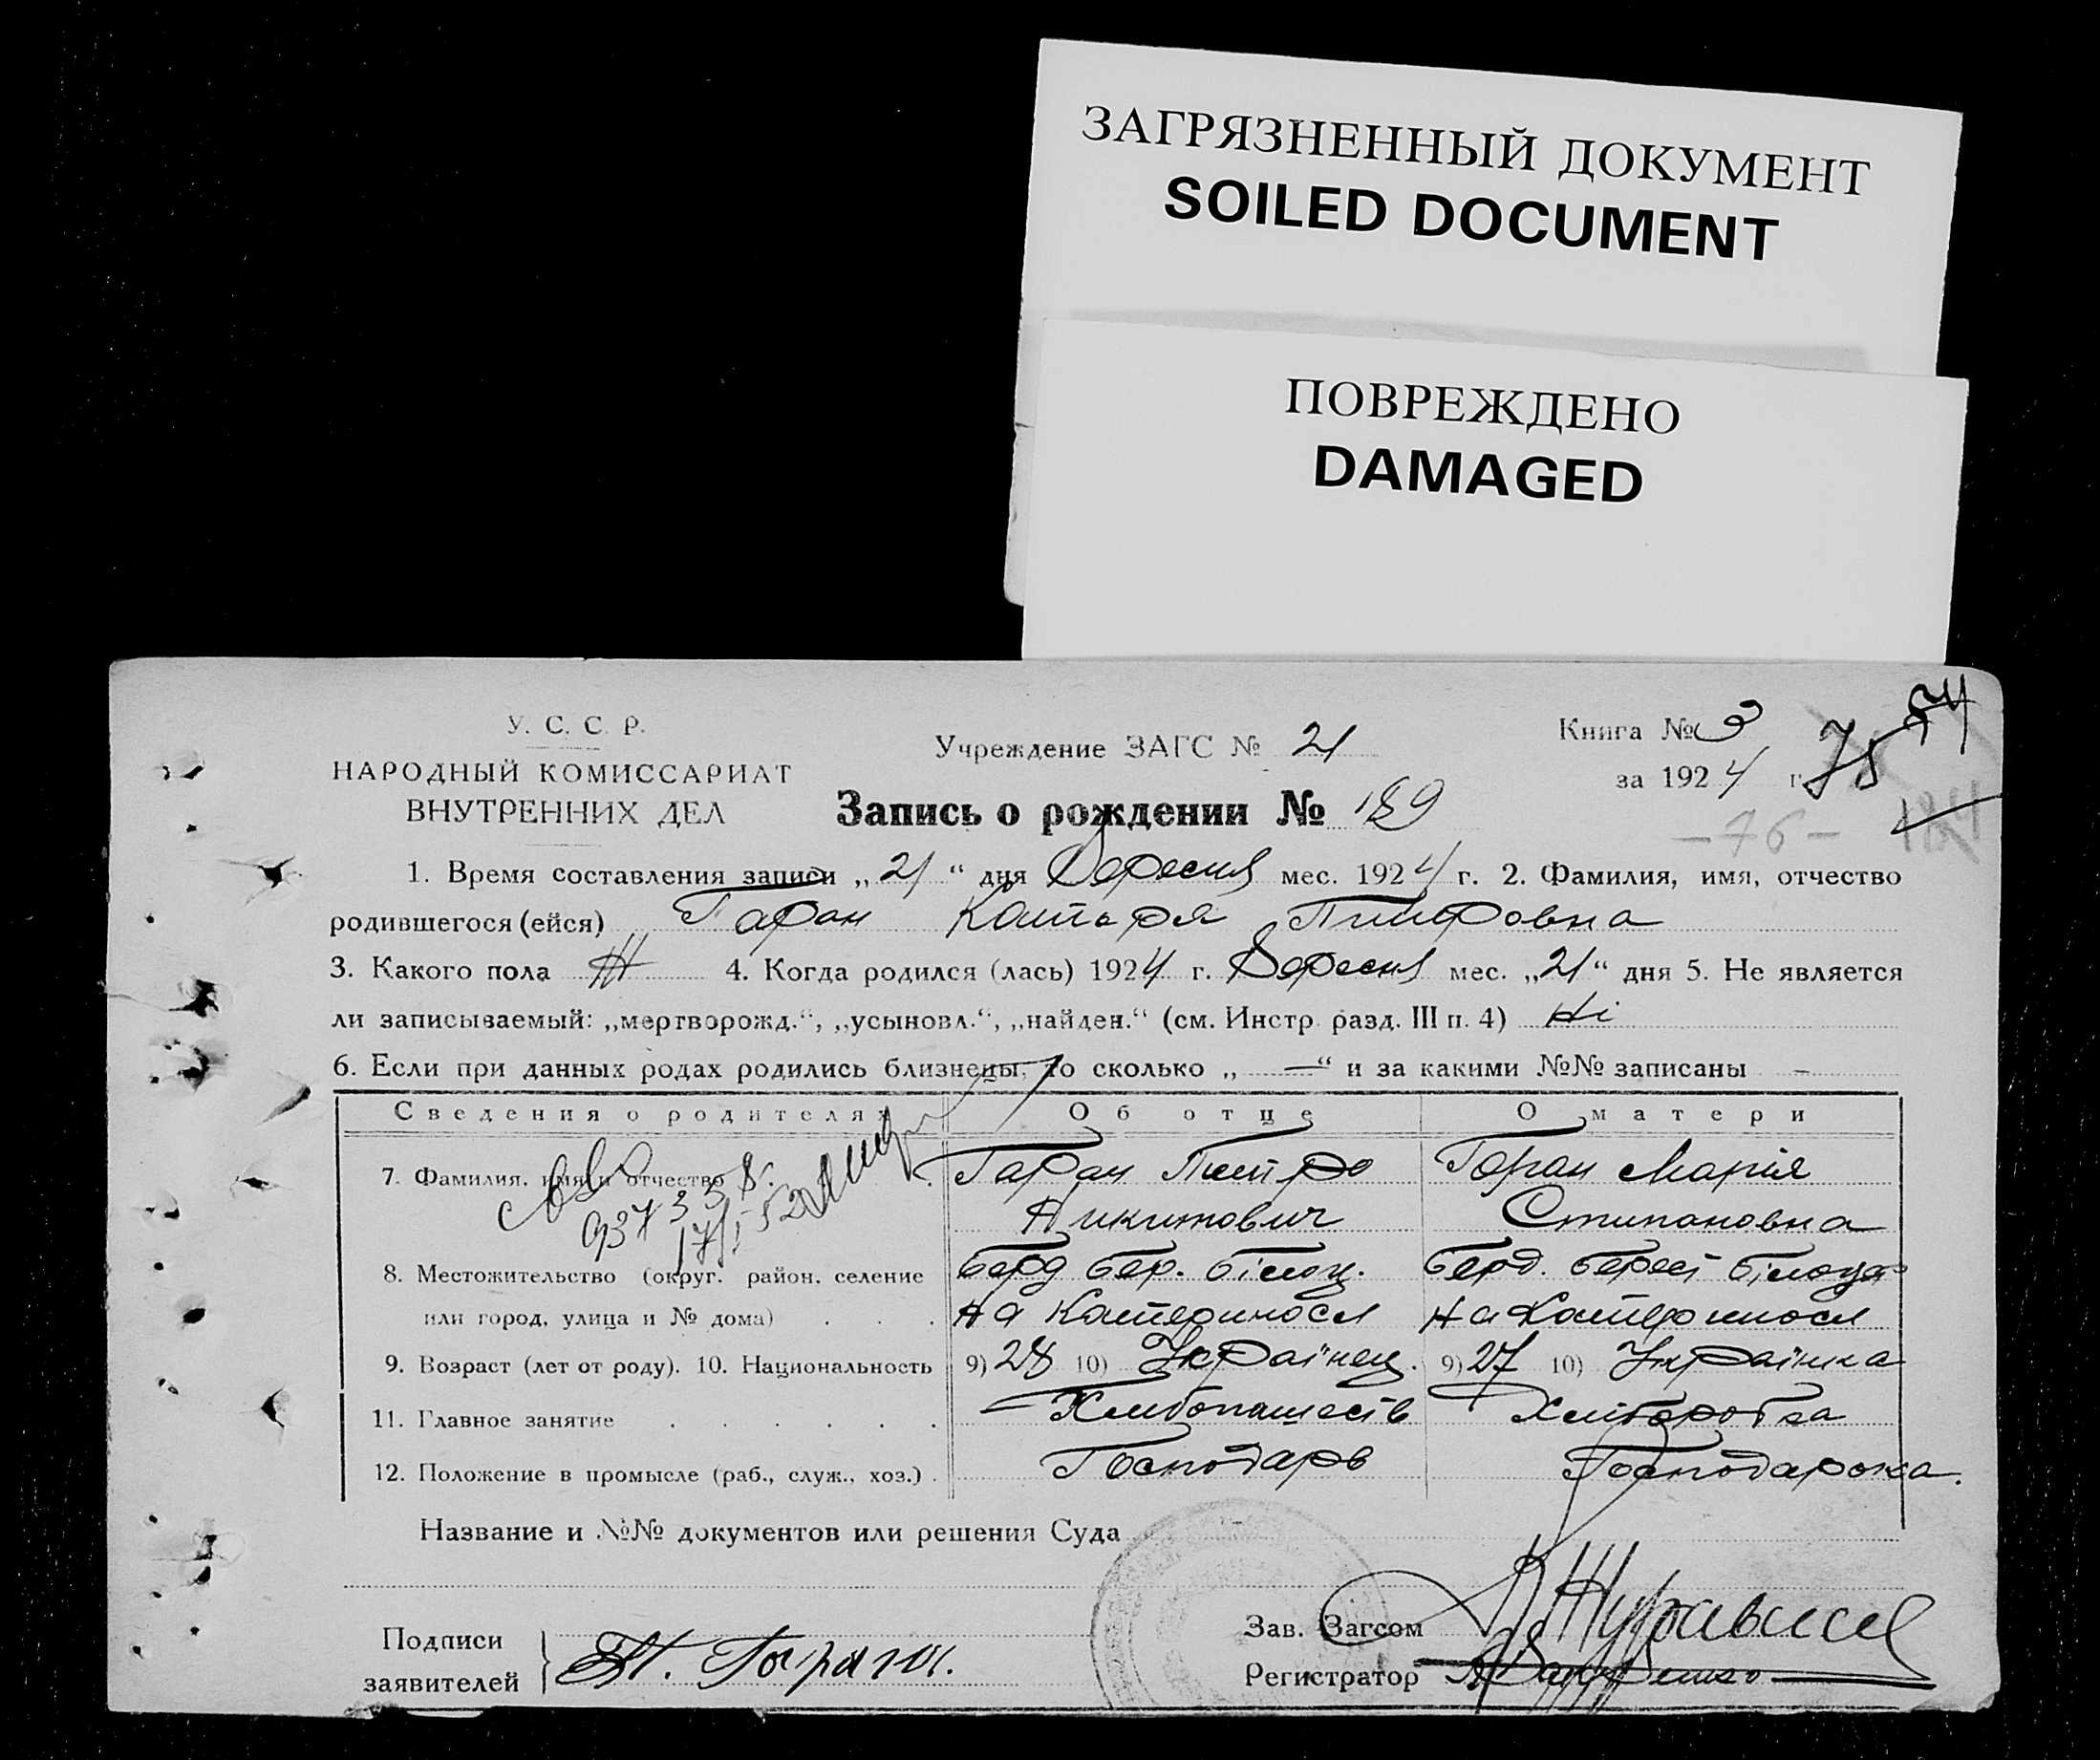 ЗАГРЯЗНЕННЫЙ ДОКУМЕНТ
SOILED DOCUMENT
ПОВРЕЖДЕНО
DAMAGED
У. С. С. Р.
НАРОДНЫЙ КОМИССАРИАТ
ВНУТРЕННИХ ДЕЛ
Учреждение ЗАГС № 21
Книга № 3
за 1924 г.
75
- 76 -
Запись о рождении № 189
1. Время составления записи „21“ дня Вересня мес. 1924 г. 2. Фамилия, имя, отчество
родившегося (ейся) Гаран Катеря Питровна
3. Какого пола Ж 4. Когда родился (лась) 1924 г. Вересня мес. „21“ дня 5. Не является
ли записываемый: „мертворожд.“, „усыновл.“, „найден.“ (см. Инстр. разд. III п. 4) Ні
6. Если при данных родах родились близнецы, то сколько „—“ и за какими №№ записаны –
Сведения о родителях Об отце О матери
7. Фамилия, имя и отчество Гаран Питро Гаран Марія
Никитович Стипановна
8. Местожительство (округ. район. селение Берд. Бер. Білоц. Берд. Берест Білоц
или город, улица и № дома) На Катериносл На Катериносл
9. Возраст (лет от роду). 10. Национальность 9) 28 10) Українец. 9) 27 10) Українка
11. Главное занятие Хлибопашеств Хлиборобка
12. Положение в промысле (раб., служ., хоз.) Господарь Господарока.
Название и №№ документов или решения Суда
Подписи
заявителей
Гаран.
Зав. Загсом
Регистратор